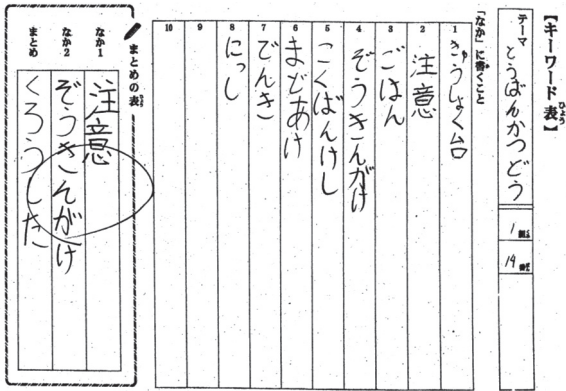 【キーワード表】
ひょう
テーマ
とうばんかつどう
1
19
「なか」に書くこと
1 きゅうしょく台
2 注意
3 ごはん
4 ぞうきんがけ
5 こくばんけし
6 まどあけ
7 でんき
8 にっし
9
10
まとめの表
ひょう
なか1 注意
なか2 ぞうきんがけ
まとめ くろうした